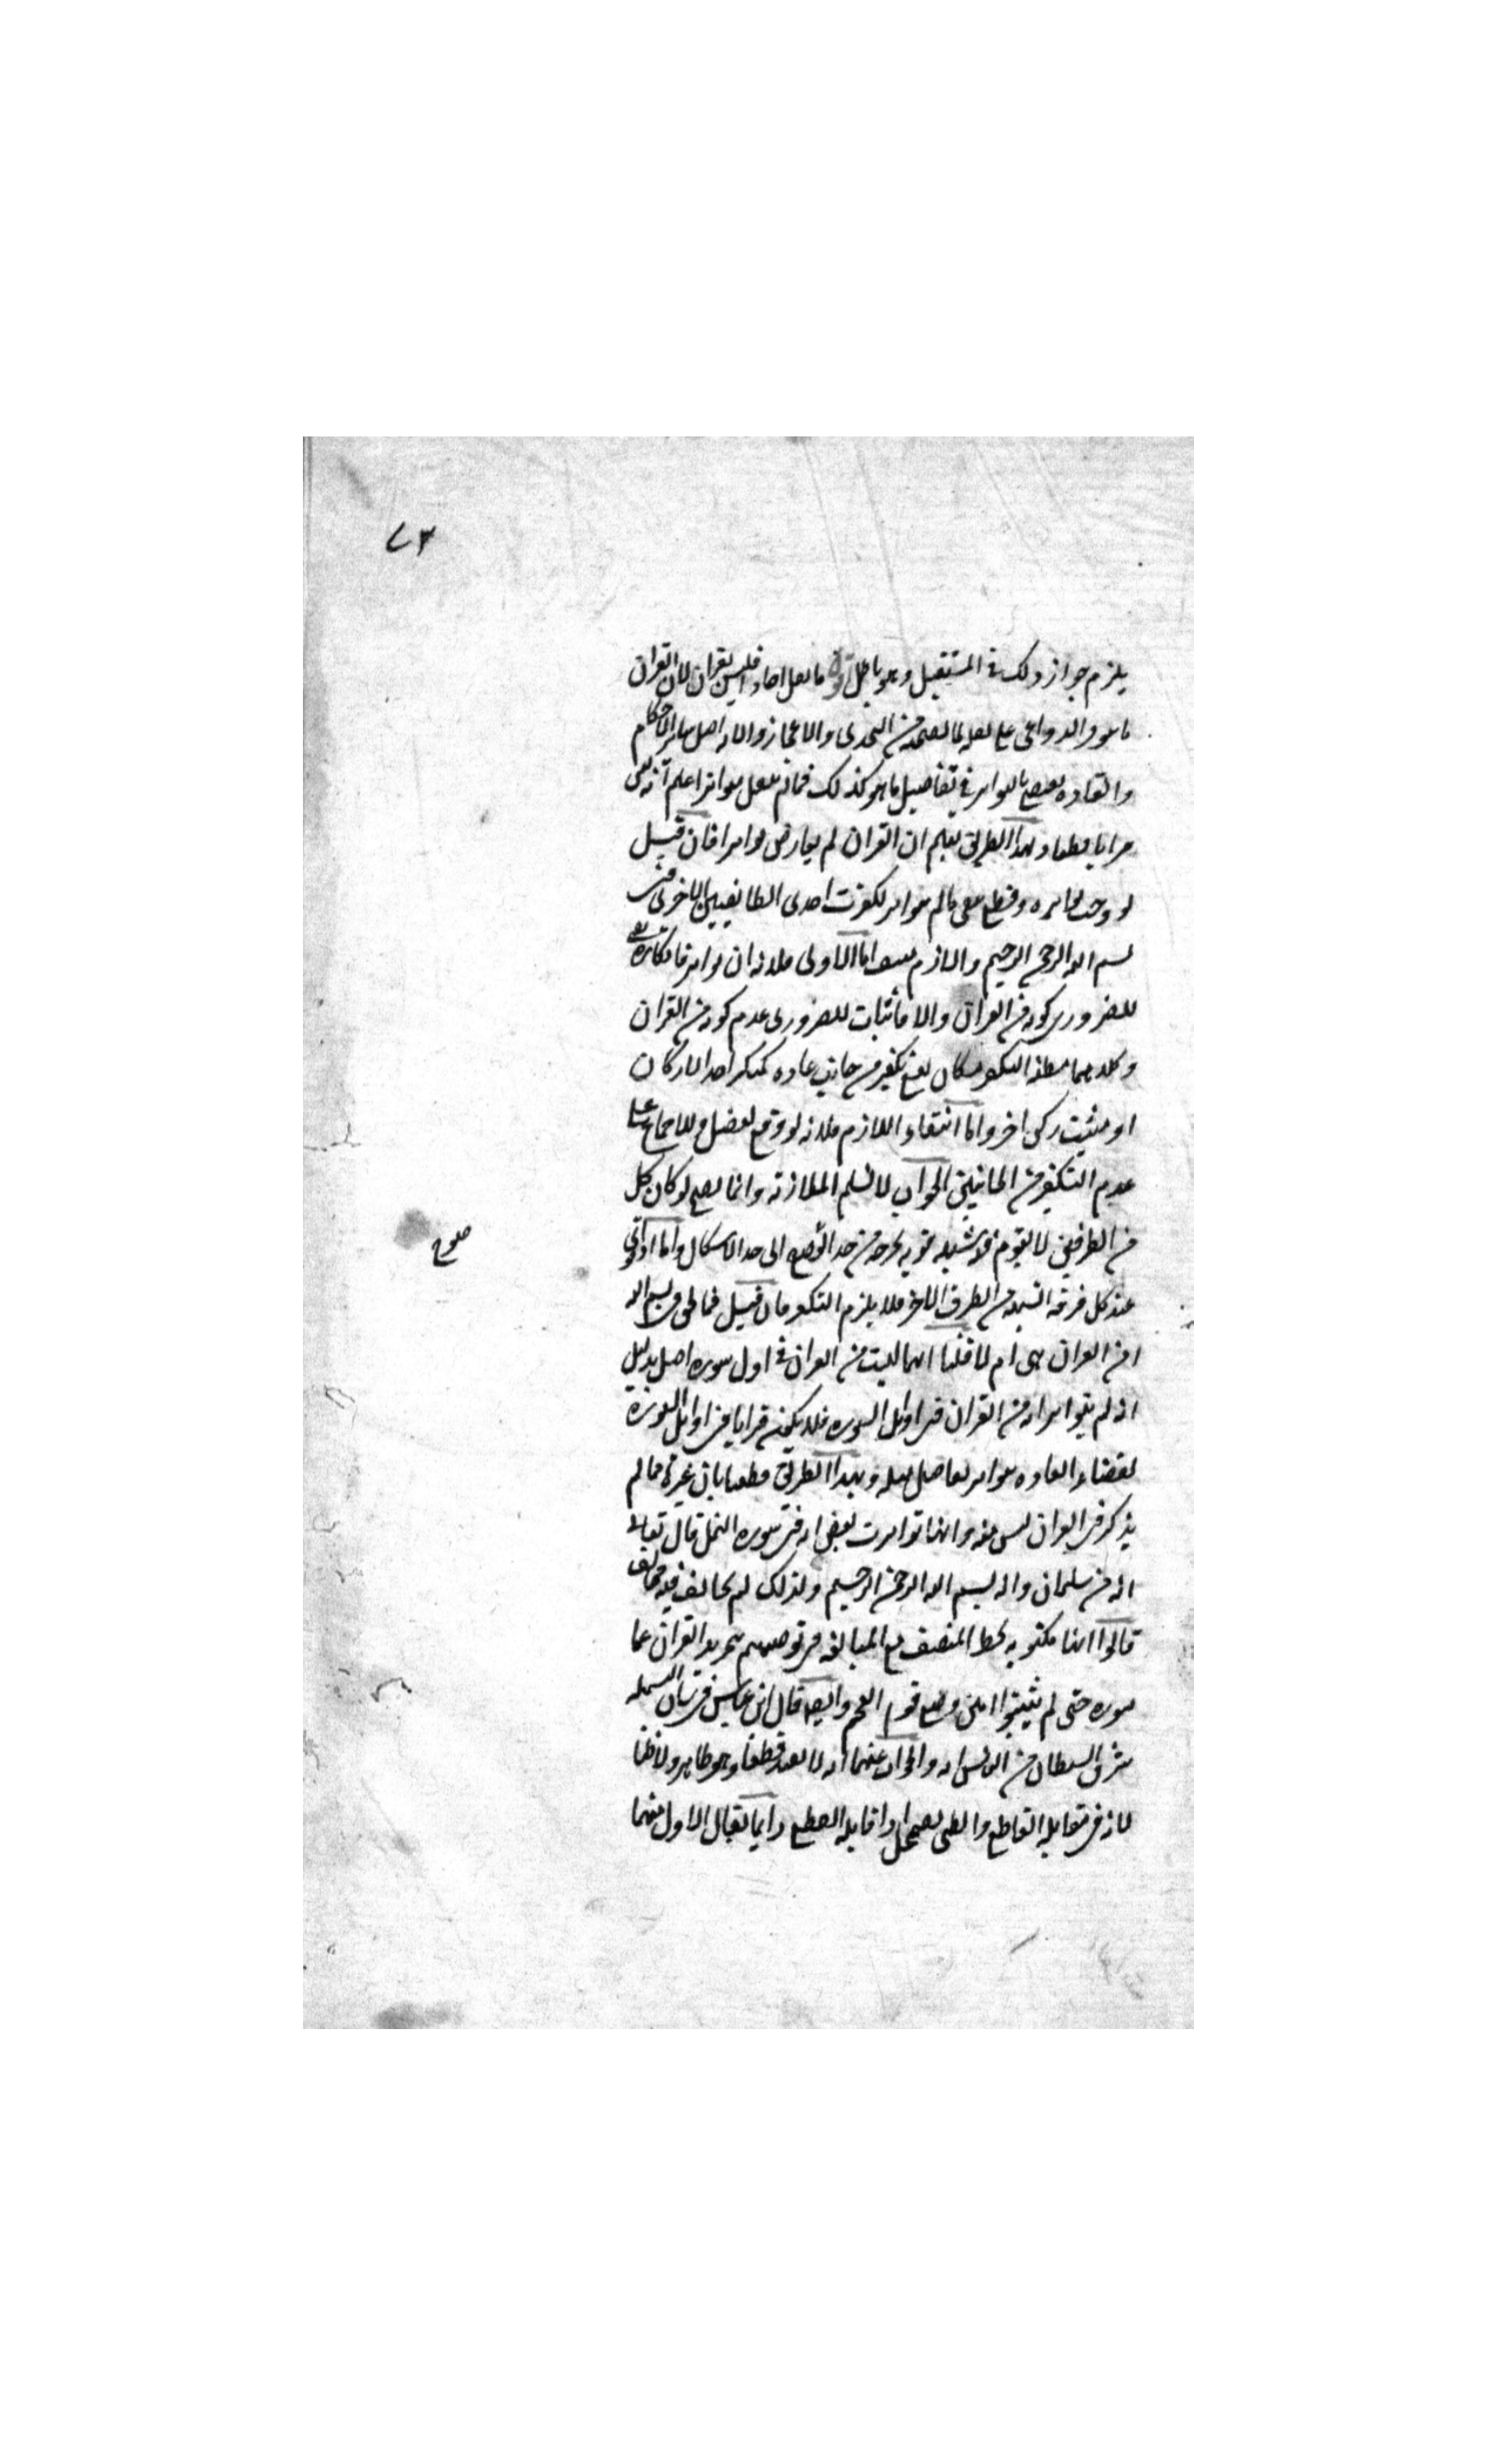 ٧٣
يلزم جواز ذلك في المستقبل وهو باطل قوله ما نقل احاد فليس بقران لان القران
مما يتوفر الدواعي على نقله لما تضمنه من التحدي والاعجاز ولانه اصل سائر الاحكام
والعاده تقضي بالتواتر في تفاصيل ما هو كذلك فما لم ينقل متواترا علم انه ليس
قرانا قطعا وبهذا الطريق يعلم ان القران لم يعارض فان قيل
لو وجب تواتره وقطع بنفي ما لم يتواتر لكفرت احدى الطائفتين الاخرى في
بسم الله الرحمن الرحيم واللازم منتف اما الاولى فلانه ان تواتر فانكاره نفي
للضروري كونه من القران والا فاثبات للضروري عدم كونه من القران
وكلاهما مظنة التكفير فكان يقع تكفير من جانب عاده كمنكر احد الاركان
او مثبت ركن اخر واما انتفاء اللازم فلانه لو وقع لنقل وللاجماع على
عدم التكفير من الجانبين الجواب لا نسلم الملازمة وانما يصح لو كان كل
من الطرفين لا يقوم فيه شبهه قويه تخرجه من حد الوضوح الى حد الاشكال واما اذا قوي
عند كل فرقه الشبهه من الطرف الاخر فلا يلزم التكفير فان قيل فما الحق في بسم الله
امن القران هي ام لا قلنا انها ليست من القران في اول سوره اصلا بدليل
انه لم يتواتر انه من القران في اوائل السوره فلا يكون قرانا في اوائل السورة
لقضاء العاده بتواتر تفاصيل مثله وبهذا الطريق قطعنا بان غيره مما لم
يذكر في القران ليس منه وانما تواترت بعض ايه في سوره النمل قال تعالى
انه من سليمان وانه بسم الله الرحمن الرحيم ولذلك لم يخالف فيه مخالف
قالوا انها مكتوبه بخط المصحف مع المبالغه في توصيتهم بتجريد القران عما
سوره حتى لم يثبتوا امين ومنع قوم العجم وايضا قال ابن عباس في ترك البسمله
سرق الشيطان من الناس ايه والجواب عنهما انه لا يفيد قطعا وهو ظاهر ولا ظنا
لانه في مقابلة القاطع والظن يضمحل اذا قابله القطع وايضا يقال الاول منهما